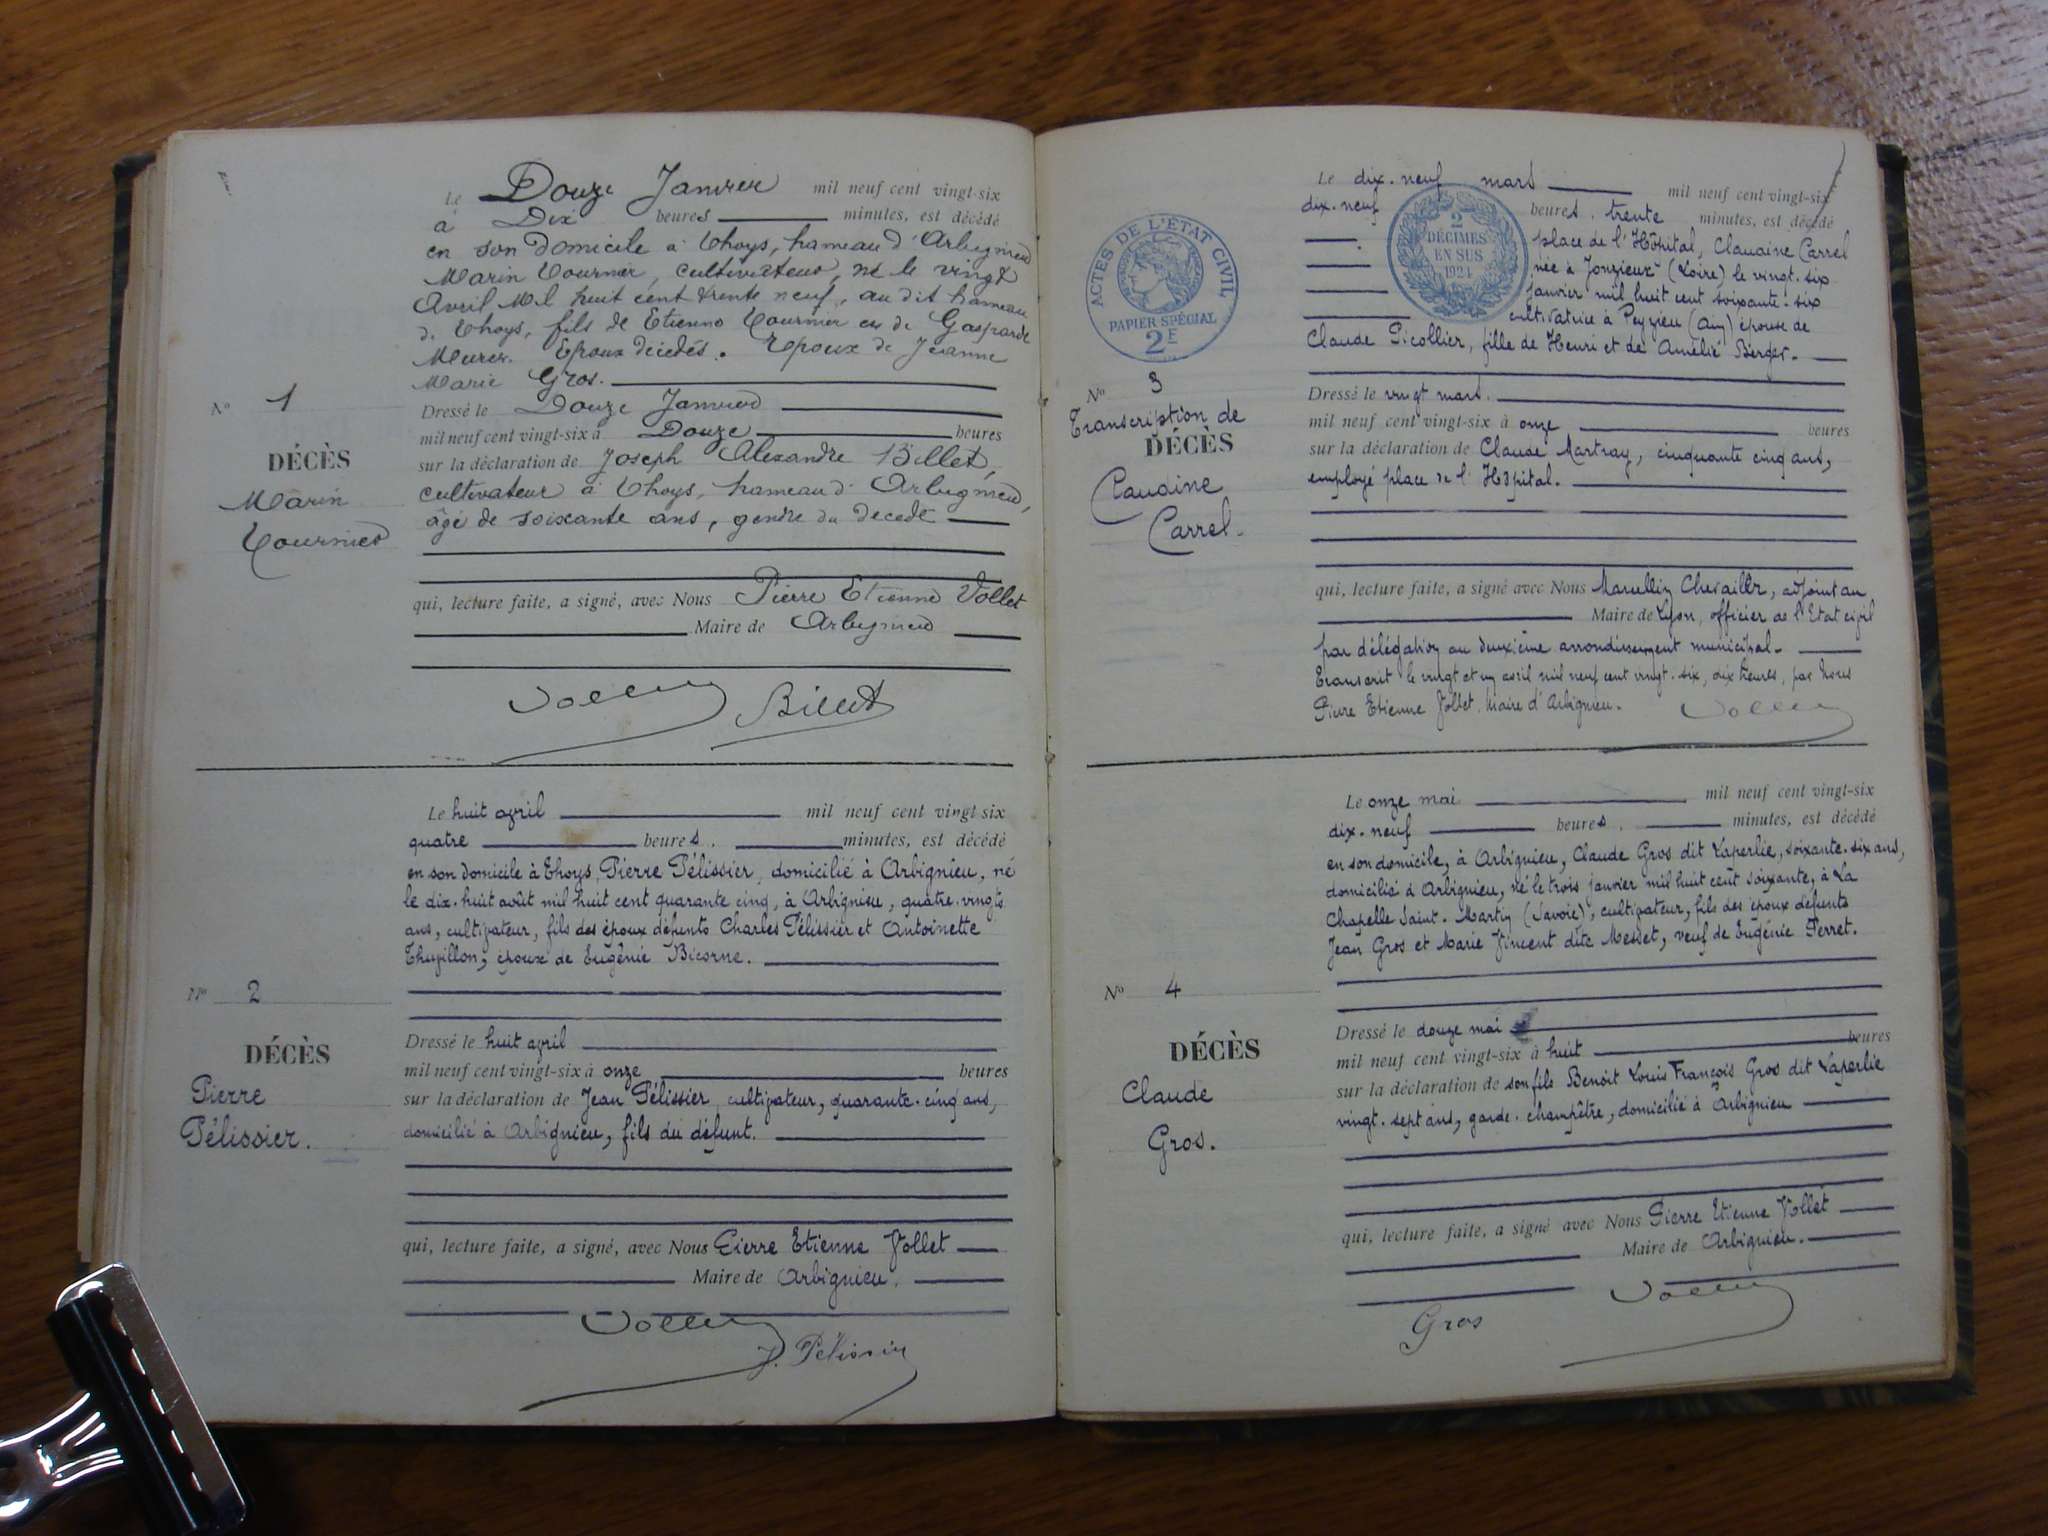 Le Douze Janvier mil neuf cent vingt-six
à Dix heures minutes, est décédé
en son domicile à Thoys, hameau d'Arbignieu
Marin Tournier, cultivateur, né le vingt
Avril Mil huit cent trente neuf, au dit hameau
de Thoys, fils de Etienne Tournier et de Gasparde
Epoux décédés. Epoux de Jeanne
Marie Gros.
Nº 1
DÉCÈS
Marin
Tournier
Dressé le Douze Janvier
mil neuf cent vingt-six à Douze heures
sur la déclaration de Joseph Alexandre Billet,
cultivateur à Thoys, hameau d'Arbignieu,
âgé de soixante ans, gendre du décédé
qui, lecture faite, a signé, avec Nous Pierre Etienne Vollet
Maire de Arbignieu
Vollet Billet
Le huit avril mil neuf cent vingt-six
quatre heures, minutes, est décédé
en son domicile à Thoys, Pierre Pélissier, domicilié à Arbignieu, né
le dix-huit août mil huit cent quarante cinq, à Arbignieu, quatre-vingts
ans, cultivateur, fils des époux défunts Charles Pélissier et Antoinette
Thupillon, époux de Eugénie Bicorne.
Nº 2
DÉCÈS
Pierre
Pélissier.
Dressé le huit avril
mil neuf cent vingt-six à onze heures
sur la déclaration de Jean Pélissier, cultivateur, quarante-cinq ans,
domicilié à Arbignieu, fils du défunt.
qui, lecture faite, a signé, avec Nous Pierre Etienne Vollet
Maire de Arbignieu.
Vollet
J. Pélissier
ACTES DE L'ÉTAT CIVIL
PAPIER SPÉCIAL
2F
2
DÉCIMES
EN SUS
1924
Le dix-neuf mars mil neuf cent vingt-six
dix-neuf heures, trente minutes, est décédé
place de l'Hôpital, Claudine Carrel
née à Jonzieux (Loire) le vingt-six
janvier mil huit cent soixante-six
cultivatrice à Peyzieu (Ain) épouse de
Claude Picollier, fille de Henri et de Amélie Berger.
Nº 3
Transcription de
DÉCÈS
Claudine
Carrel.
Dressé le vingt mars.
mil neuf cent vingt-six à onze heures
sur la déclaration de Claude Martray, cinquante cinq ans,
employé place de l'Hôpital.
qui, lecture faite, a signé avec Nous Marcellin Chevailler, adjoint au
Maire de Lyon, officier de l'Etat civil
par délégation au deuxième arrondissement municipal.
Transcrit le vingt et un avril mil neuf cent vingt-six, dix heures, par Nous
Pierre Etienne Vollet, Maire d'Arbignieu. Vollet
Le onze mai mil neuf cent vingt-six
dix-neuf heures, minutes, est décédé
en son domicile, à Arbignieu, Claude Gros dit Laperlie, soixante-six ans,
domicilié à Arbignieu, né le trois janvier mil huit cent soixante, à La
Chapelle Saint-Martin (Savoie), cultivateur, fils des époux défunts
Jean Gros et Marie Vincent dite Messet, veuf de Eugénie Perret.
Nº 4
DÉCÈS
Claude
Gros.
Dressé le douze mai
mil neuf cent vingt-six à huit heures
sur la déclaration de son fils Benoit Louis François Gros dit Laperlie
vingt-sept ans, garde-champêtre, domicilié à Arbignieu
qui, lecture faite, a signé avec Nous Pierre Etienne Vollet
Maire de Arbignieu.
Vollet
Gros